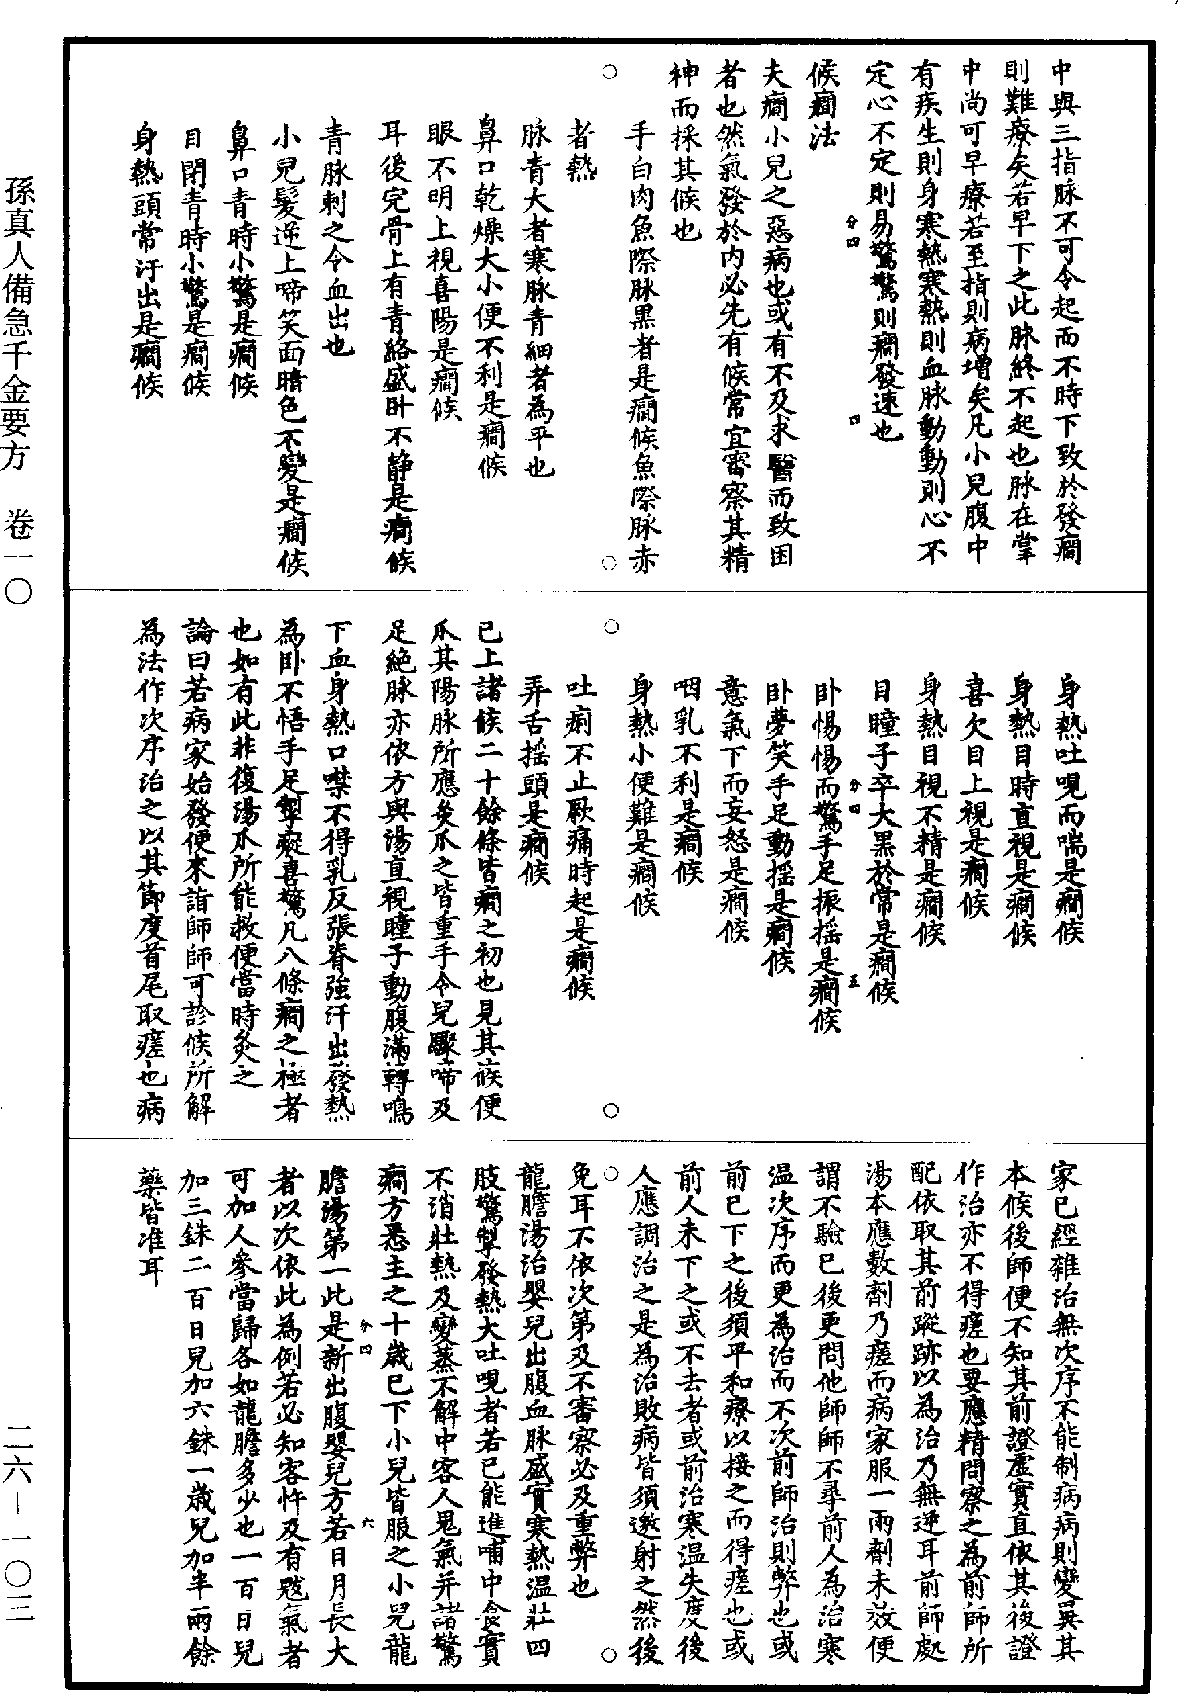 中與三指脉不可令起而不時下致於發癇
則難療矣若早下之此脉終不起也脉在掌
中尚可早療若至指則病增矣凡小兒腹中
有疾生則身寒熱寒熱則血脉動動則心不
定心不定則易驚驚則癇發速也
分四
四
候癇法
夫癇小兒之惡病也或有不及求醫而致困
者也然氣發於內必先有候常宜審察其精
神而採其候也
手白肉魚際脉黑者是癇候魚際脉赤
者熱
脉青大者寒脉青細者為平也
鼻口乾燥大小便不利是癇候
眼不明上視喜陽是癇候
耳後完骨上有青絡盛卧不静是癇候
青脉刺之令血出也
小兒髮逆上啼笑面暗色不變是癇候
鼻口青時小驚是癇候
目閉青時小驚是癇候
身熱頭常汗出是癇候
身熱吐哯而喘是癇候
身熱目時直視是癇候
喜欠目上視是癇候
身熱目視不精是癇候
目瞳子卒大黑於常是癇候
分四
五
卧惕惕而驚手足振摇是癇候
卧夢笑手足動摇是癇候
意氣下而妄怒是癇候
咽乳不利是癇候
身熱小便難是癇候
吐痢不止厥痛時起是癇候
弄舌摇頭是癇候
已上諸候二十餘條皆癇之初也見其候便
爪其陽脉所應灸爪之皆重手令兒驟啼及
足絕脉亦依方與湯直視瞳子動腹滿轉鳴
下血身熱口噤不得乳反張脊強汗出發熱
為卧不悟手足掣瘲喜驚凡八條癇之極者
也如有此非復湯爪所能救便當時灸之
論曰若病家始發便來詣師師可診候所解
為法作次序治之以其節度首尾取瘥也病
家已經雜治無次序不能制病病則變異其
本候後師便不知其前證虛實直依其後證
作治亦不得瘥也要應精問察之為前師所
配依取其前蹤跡以為治乃無逆耳前師處
湯本應數劑乃瘥而病家服一兩劑未效便
謂不驗已後更問他師師不尋前人為治寒
温次序而更為治而不次前師治則弊也或
前已下之後須平和療以接之而得瘥也或
前人未下之或不去者或前治寒温失度後
人應調治之是為治敗病皆須邀射之然後
免耳不依次第及不審察必及重弊也
龍膽湯治嬰兒出腹血脉盛實寒熱温壯四
肢驚掣發熱大吐哯者若已能進哺中食實
不消壯熱及變蒸不解中客人鬼氣并諸驚
癇方悉主之十歲已下小兒皆服之小兒龍
膽湯第一此是新出腹嬰兒方若日月長大
分四
六
者以次依此為例若必知客忤及有魃氣者
可加人參當歸各如龍膽多少也一百日兒
加三銖二百日兒加六銖一歲兒加半兩餘
藥皆准耳
孫真人備急千金要方　卷一〇
二六－一〇三